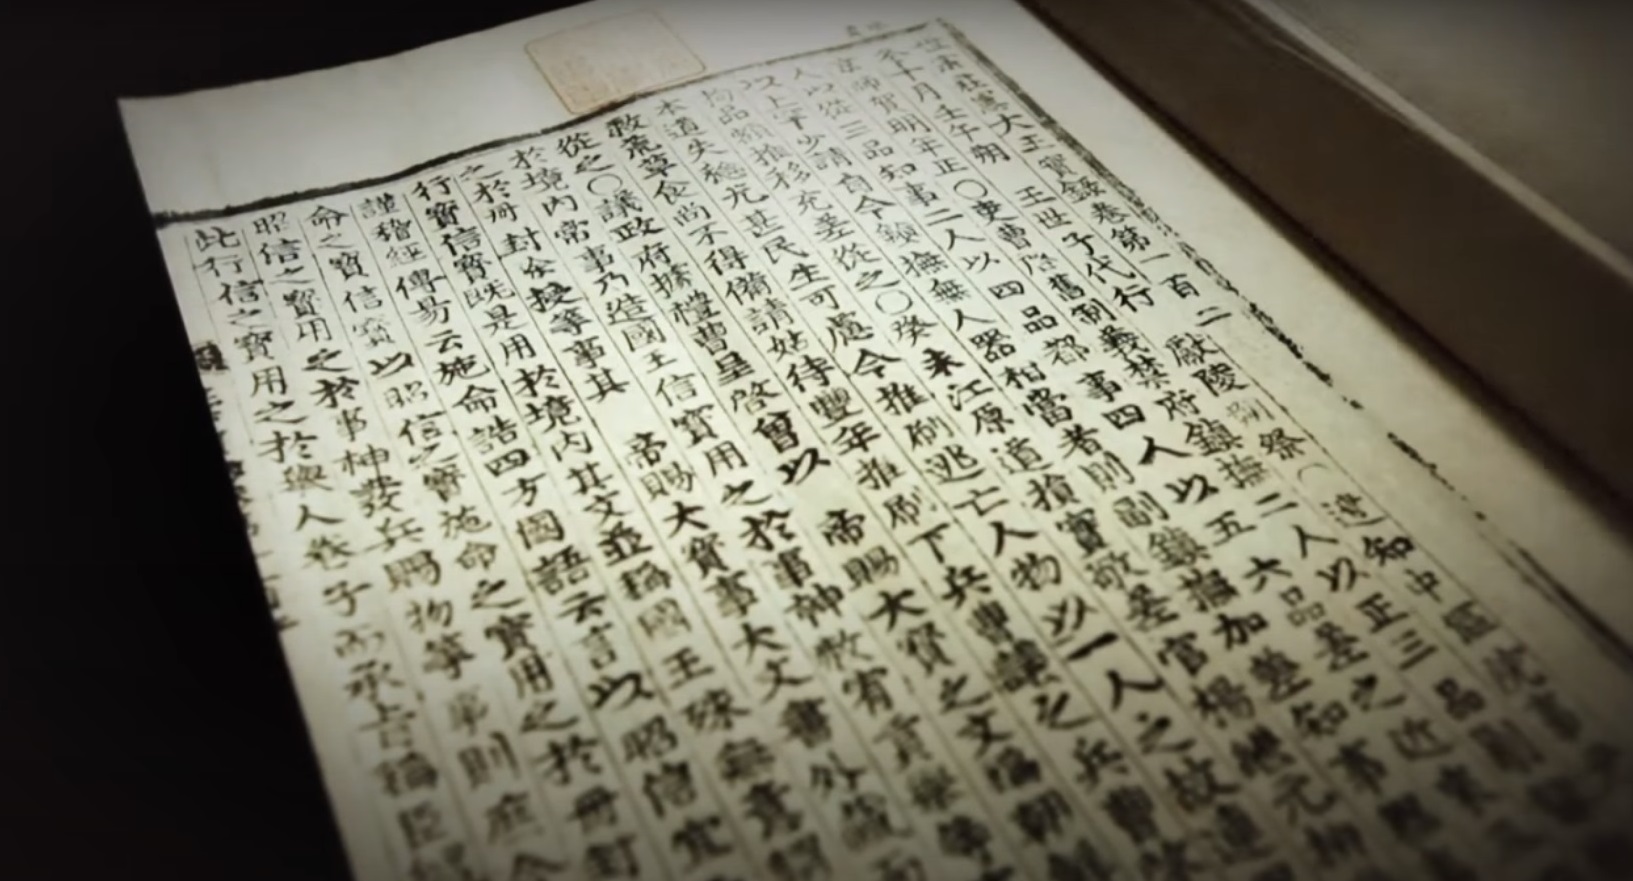 世宗莊憲大王實錄卷第一百二
冬十月壬午朔 王世子代行 獻陵別祭○遣知中樞
京師賀明年正○吏曹啓舊制義禁府鎭撫二人以正三品則
人以從三品知事二人以四品都事四人以五六品差之近來
以上字少請自今鎭撫無人器相當者則副鎭撫加差知事
拘品類推移充差從之○癸未江原道損實敬差官楊繼元
本道失稔尤甚民生可慮今推刷逃亡人物以一人之故連
救荒草食尚不得備請姑待豐年推刷下兵曹議之兵曹
從之○議政府據禮曹呈啓曾以 帝賜大寶之文倣朝
於境內常事乃造國王信寶用之於事神赦宥貢擧等
之於冊封除授等事其 帝賜大寶事大文書外
行寶信寶既是用於境內其文並稱國王殊無意
謹稽經傳易云施命誥四方國語云言以昭信宜
命之寶信寶以昭信之寶施命之寶用之於冊封
昭信之寶用之於事神發兵賜物等事則庶合
此行信之寶用之於與人卷子而承旨稱臣